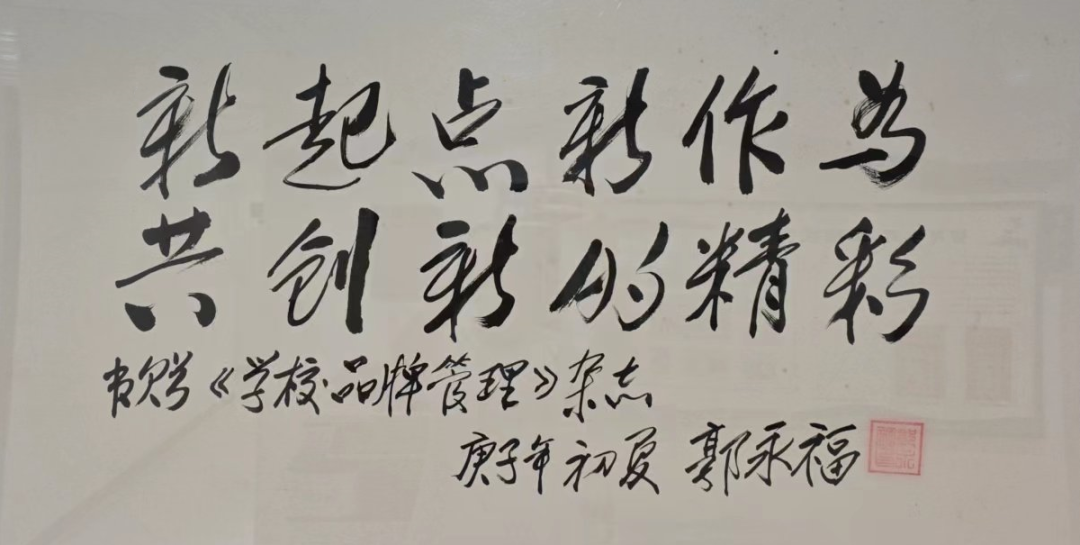 新起点新作为
共创新的精彩
书赠《学校品牌管理》杂志
庚子年初夏 郭永福